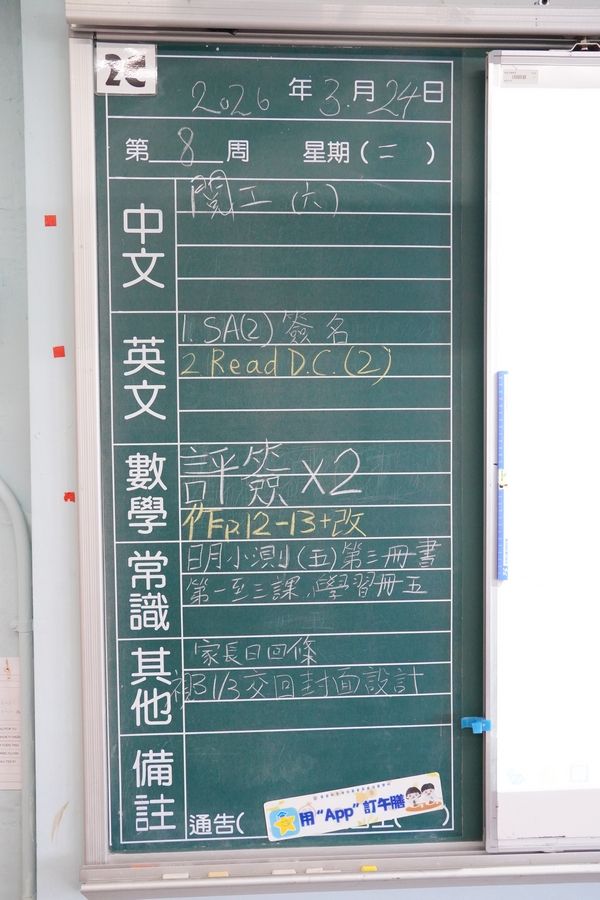 2C
2026 年 3 月 24 日
第 8 周 星期 ( 二 )
中文
閱工 (六)
英文
1. SA(2) 簽名
2 Read D.C. (2)
數學
評簽 x2
作 p.12-13+改
常識
明小測 (五) 第三冊書
第一至三課,學習冊五
其他
家長日回條
視31/3交回封面設計
備註
通告(
用 "App" 訂午膳
)